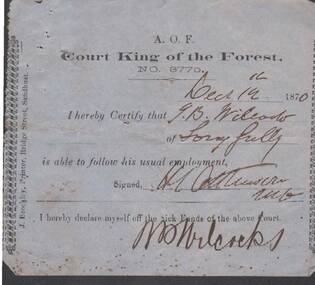 A. O. F.
Court King of the Forest.
NO. 3770.
1870
I hereby Certify that T. B. Wilcocks
of Long Gully
is able to follow his usual employment,
Signed,
I hereby declare myself off the Sick Funds of the above Court.
Wilcocks
J. Brockley, Printer, Bridge Street, Sandhurst.